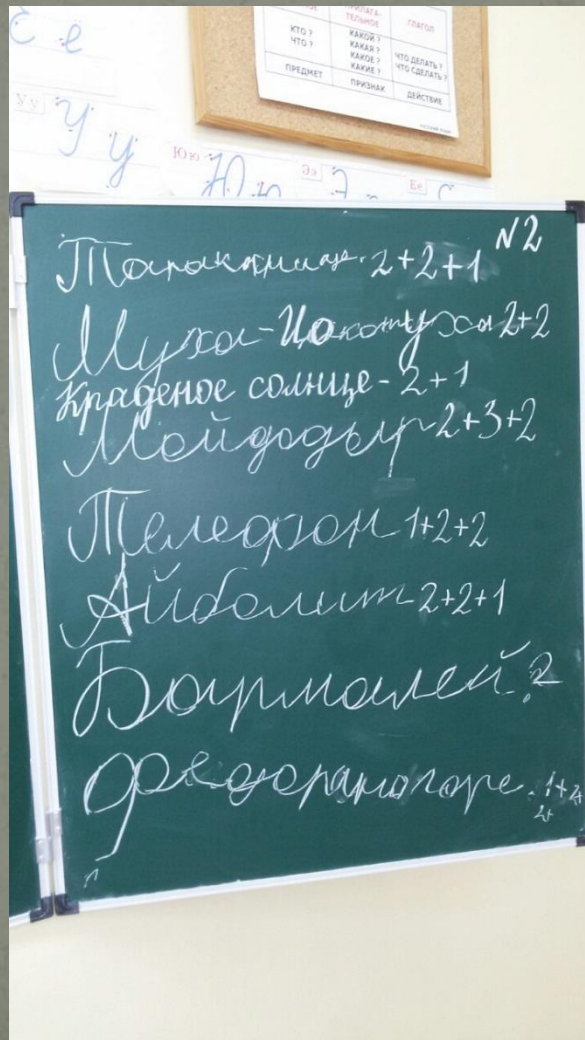 Е е
ПРИЛАГА-
ТЕЛЬНОЕ
ГЛАГОЛ
КТО?
ЧТО?
КАКОЙ?
КАКАЯ?
КАКОЕ?
КАКИЕ?
ЧТО ДЕЛАТЬ?
ЧТО СДЕЛАТЬ?
ПРЕДМЕТ
ПРИЗНАК
ДЕЙСТВИЕ
Уу У у
Юю Ю ю
Ээ Э
Ее
№2
Тараканище. 2+2+1
Муха-Цокотуха 2+2
Краденое солнце - 2+1
Мойдодыр 2+3+2
Телефон 1+2+2
Айболит 2+2+1
Бармалей. 2
Федораногоре. 1+2+
2+